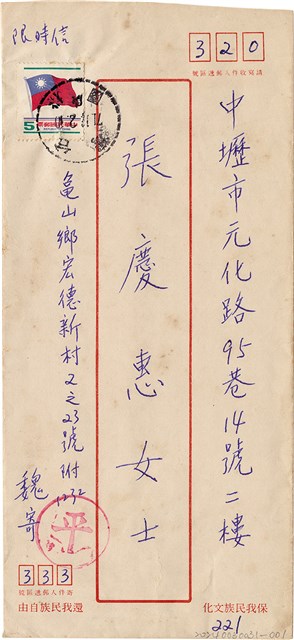 320
請寫收件人郵遞區號
中壢市元化路95巷14號二樓
張慶惠女士
限時信
5
龜山鄉宏德新村2之23號附
魏寄
平
333
寄件人郵遞區號
保我民族文化
還我民族自由
221